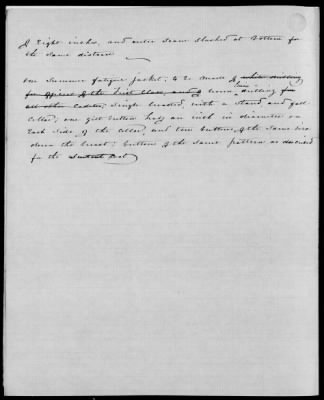 of Eight inches, and outer seam slashed at bottom for
the same distance.
One Summer fatigue jacket; to be made of white drilling
for officers of the First Class, and of brown drilling for
all other Cadets, Single breasted, with a stand and fall
Collar; one gilt button half an inch in diameter on
Each Side of the Collar, and ten buttons of the same size
down the breast; buttons of the same pattern as described
for the